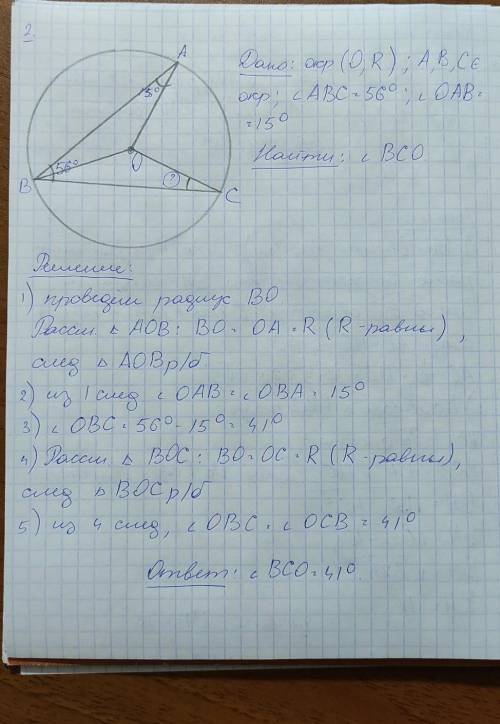 2.
A
15°
56°
B
O
?
C
Дано: окр (O, R) ; A, B, C ∈
окр; ∠ABC = 56°; ∠OAB =
= 15°
Найти: ∠ BCO
Решение:
1) проведём радиус BO
Рассм. ∆ AOB: BO = OA = R (R - равны) ,
след ∆ AOB р/б
2) из 1 след ∠ OAB = ∠ OBA = 15°
3) ∠ OBC = 56° - 15° = 41°
4) Рассм ∆ BOC: BO = OC = R (R - равны),
след ∆ BOC р/б
5) из 4 след, ∠ OBC = ∠ OCB = 41°
Ответ: ∠ BCO = 41°.